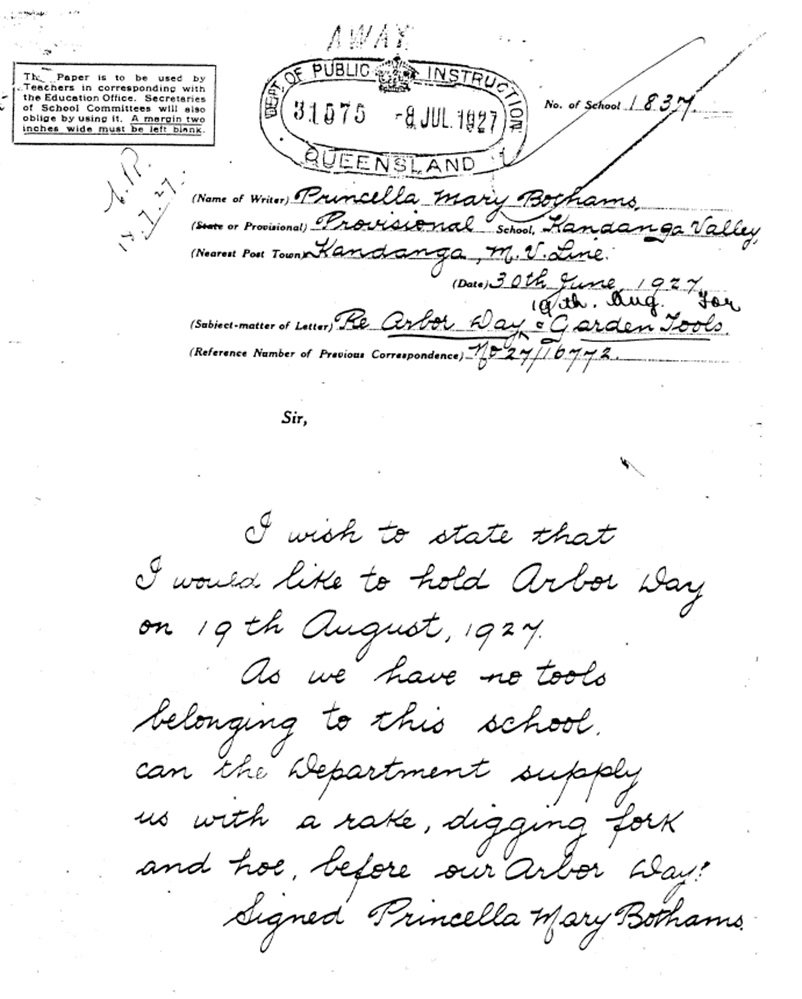 AWAY
The Paper is to be used by
Teachers in corresponding with
the Education Office. Secretaries
of School Committees will also
oblige by using it. A margin two
inches wide must be left blank.
DEPT OF PUBLIC INSTRUCTION
31575 -8 JUL. 1927
QUEENSLAND
No. of School 1837.
18.7.27.
(Name of Writer) Princella Mary Bothams.
(State or Provisional) Provisional School, Kandanga Valley,
(Nearest Post Town) Kandanga, M. V. Line.
(Date) 30th June, 1927
19th. Aug. For
(Subject-matter of Letter) Re Arbor Day & Garden Tools.
(Reference Number of Previous Correspondence) No 27/16772.
Sir,
I wish to state that
I would like to hold Arbor Day
on 19th August, 1927.
As we have no tools
belonging to this school,
can the Department supply
us with a rake, digging fork
and hoe, before our Arbor Day?
Signed Princella Mary Bothams.